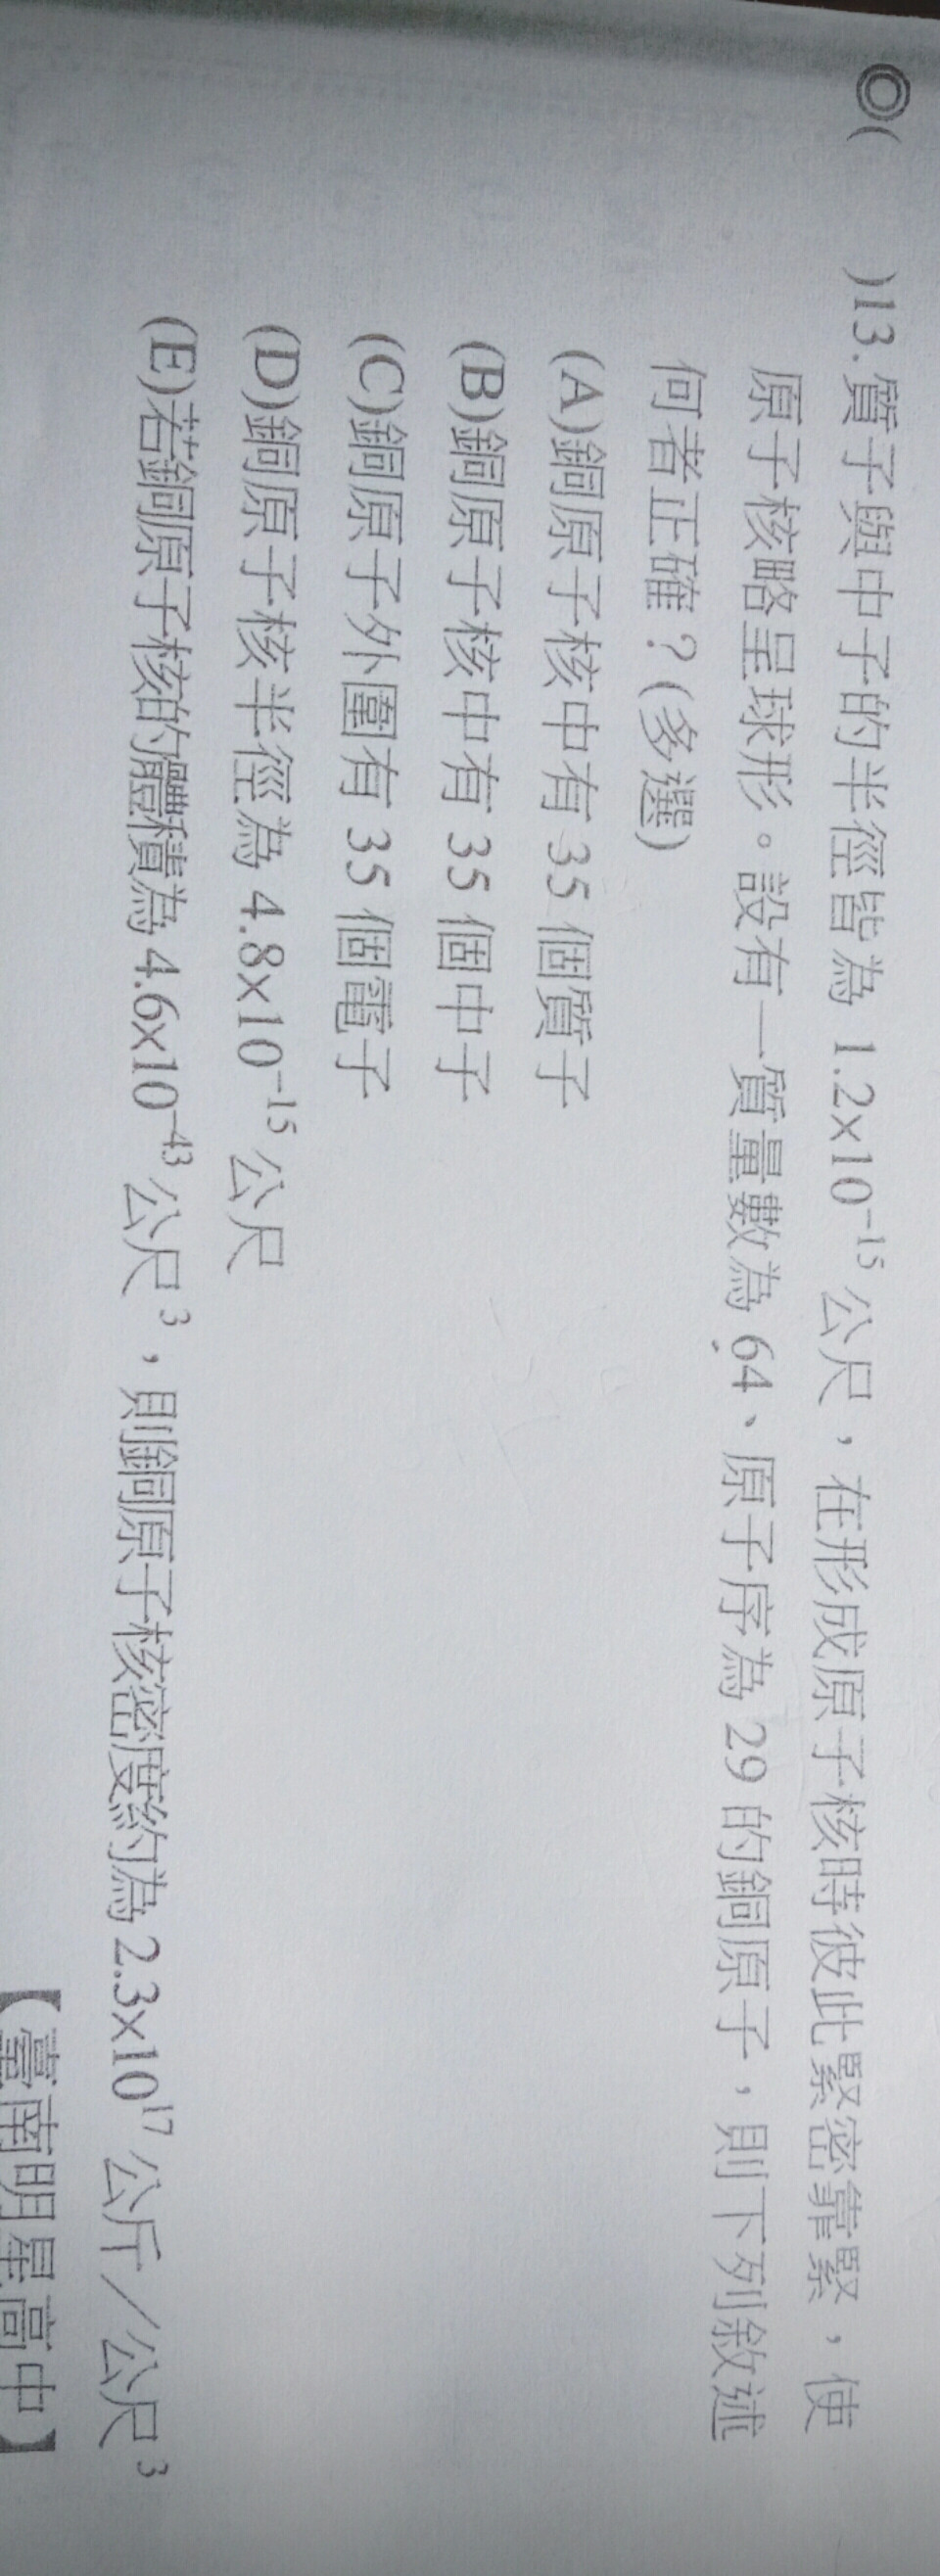 ◎(　　)13.質子與中子的半徑皆為 1.2×10⁻¹⁵ 公尺，在形成原子核時彼此緊密靠緊，使
原子核略呈球形。設有一質量數為 64、原子序為 29 的銅原子，則下列敘述
何者正確？(多選)
(A)銅原子核中有 35 個質子
(B)銅原子核中有 35 個中子
(C)銅原子外圍有 35 個電子
(D)銅原子核半徑為 4.8×10⁻¹⁵ 公尺
(E)若銅原子核的體積為 4.6×10⁻⁴³ 公尺³，則銅原子核密度約為 2.3×10¹⁷ 公斤／公尺³
【臺南明星高中】